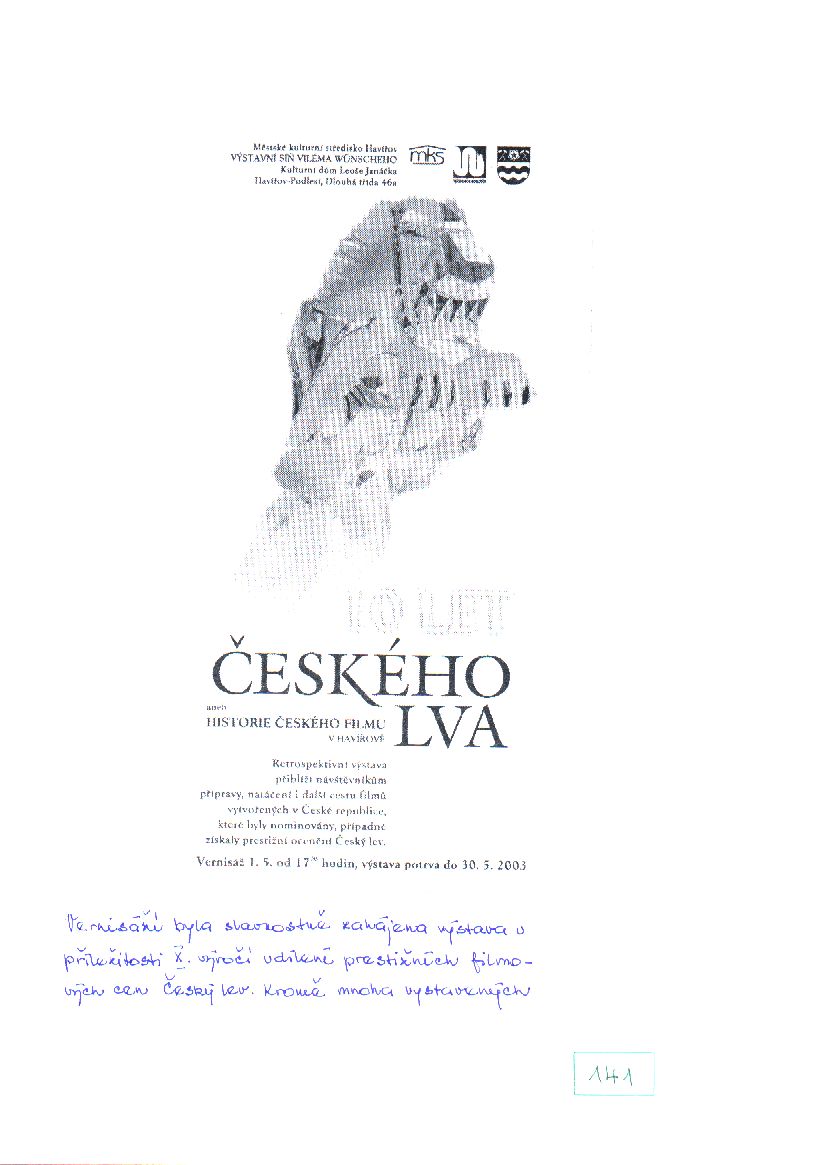 Městské kulturní středisko Havířov
VÝSTAVNÍ SÍŇ VILÉMA WÜNSCHEHO
Kulturní dům Leoše Janáčka
Havířov-Podlesí, Dlouhá třída 46a
mks
10 LET
ČESKÉHO
aneb
HISTORIE ČESKÉHO FILMU
V HAVÍŘOVĚ
LVA
Retrospektivní výstava
přiblíží návštěvníkům
přípravy, natáčení i další cestu filmů
vytvořených v České republice,
které byly nominovány, případně
získaly prestižní ocenění Český lev.
Vernisáž 1. 5. od 17⁰⁰ hodin, výstava potrvá do 30. 5. 2003
Vernisáží byla slavnostně zahájena výstava u
příležitosti X. výročí udílení prestižních filmo-
vých cen Český lev. Kromě mnoha vystavených
141